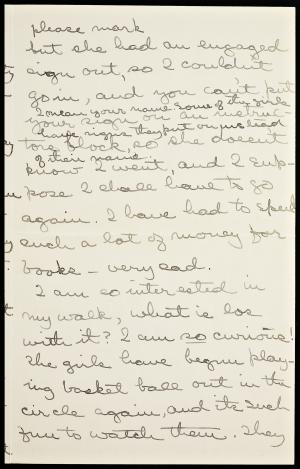 please mark
but she had an engaged
sign out, so I couldn't
go in, and you can't put
I mean your name some of the girls
your sign on an
have signs they put on instead
of their name
so she doesn't
know I went, and I sup-
pose I shall have to go
again. I have had to spend
such a lot of money for
books - very sad.
I am so interested in
my walk, what is
with it? I am so curious!
The girls have begun play-
ing basket ball out in the
circle again, and its such
fun to watch them. They